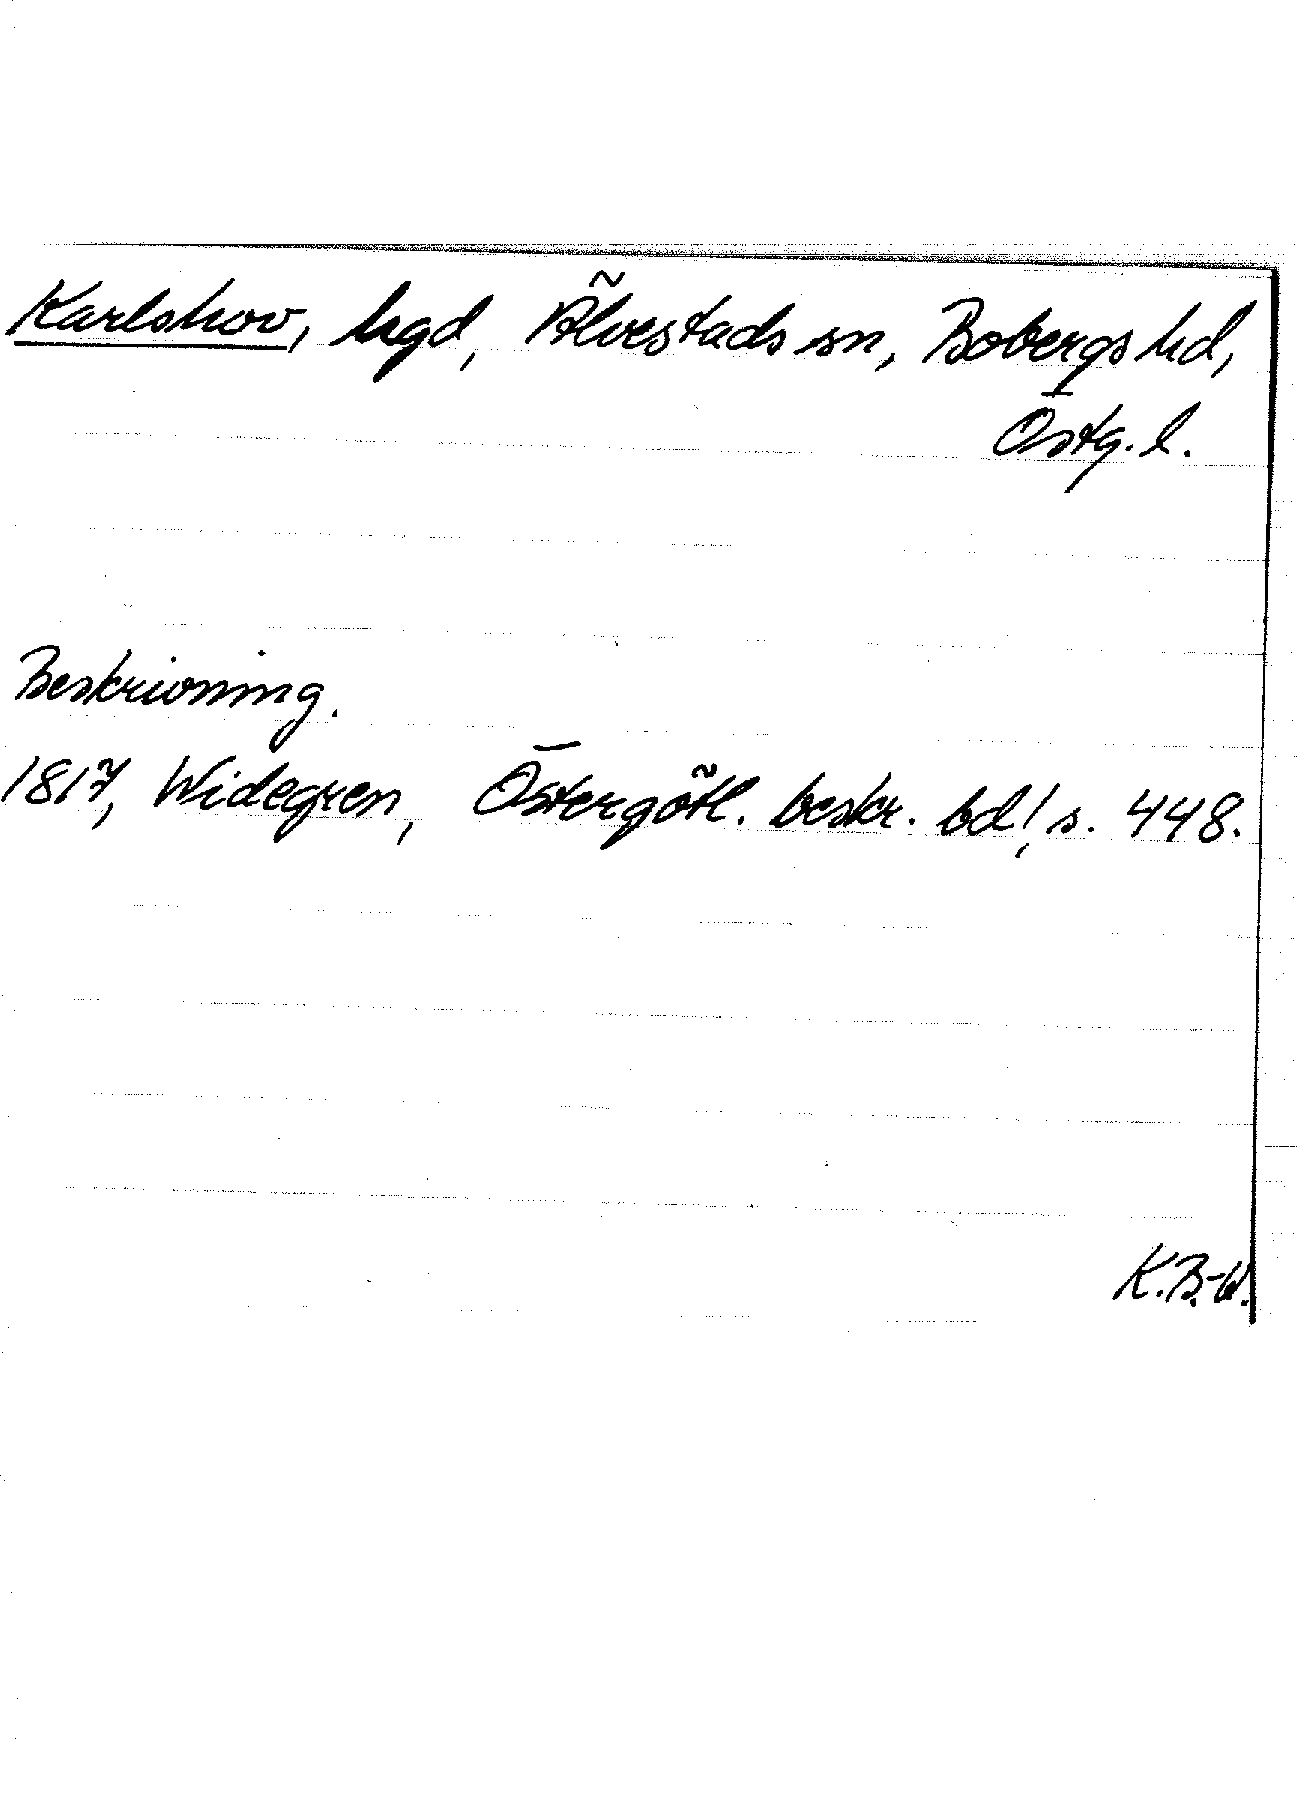 Karlshov, hgd, Älvestads sn, Bobergs hd,
Östg. l.
Beskrivning.
1817, Widegren, Östergötl. beskr. bd 1, s. 448.
K.B-W.